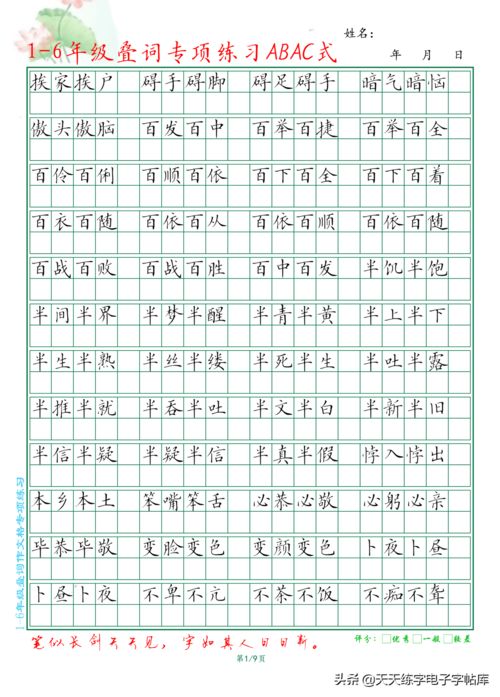 姓名：
1-6年级叠词专项练习ABAC式
年 月 日
挨家挨户 碍手碍脚 碍足碍手 暗气暗恼
傲头傲脑 百发百中 百举百捷 百举百全
百伶百俐 百顺百依 百下百全 百下百着
百衣百随 百依百从 百依百顺 百依百随
百战百败 百战百胜 百中百发 半饥半饱
半间半界 半梦半醒 半青半黄 半上半下
半生半熟 半丝半缕 半死半生 半吐半露
半推半就 半吞半吐 半文半白 半新半旧
半信半疑 半疑半信 半真半假 悖入悖出
本乡本土 笨嘴笨舌 必恭必敬 必躬必亲
毕恭毕敬 变脸变色 变颜变色 卜夜卜昼
卜昼卜夜 不卑不亢 不茶不饭 不痴不聋
1-6年级叠词作文格专项练习
笔似长剑天天见，字如其人日日新。
评分：□优秀□一般□较差
第1/9页
头条@天天练字电子字帖库